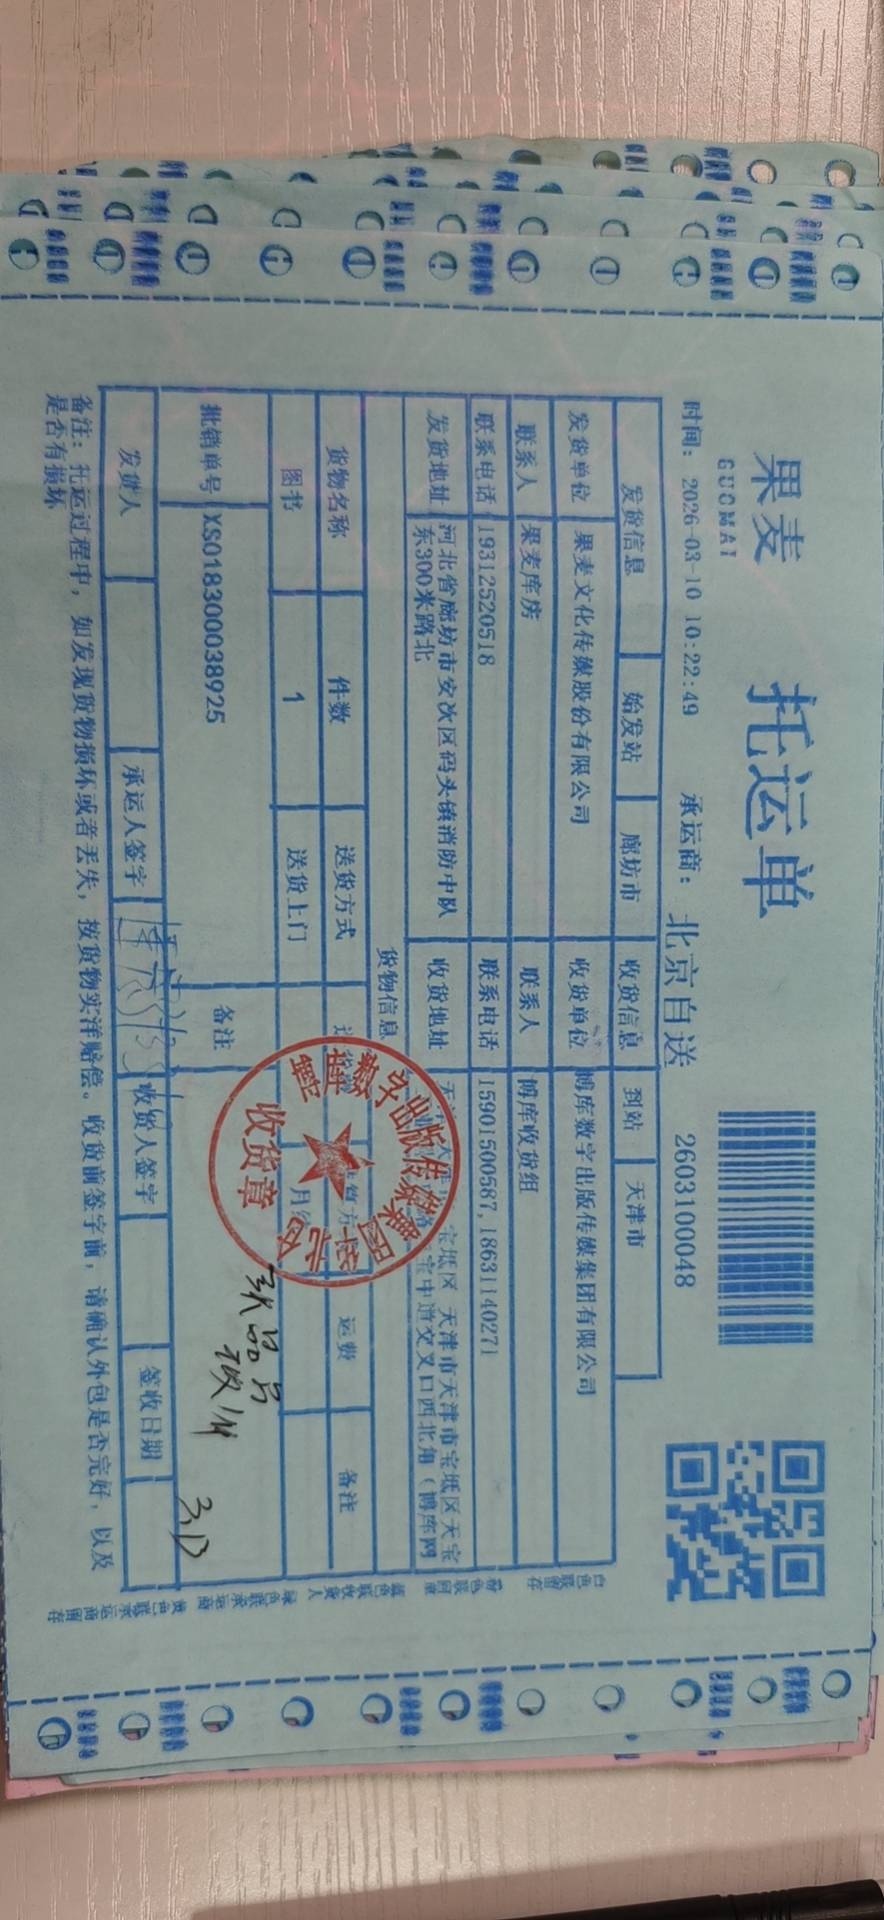 果麦
GUOMAI
托运单
时间: 2026-03-10 10:22:49 承运商: 北京自送 2603100048
发货信息 始发站 廊坊市 收货信息 到站 天津市
发货单位 果麦文化传媒股份有限公司 收货单位 博库数字出版传媒集团有限公司
联系人 果麦库房 联系人 博库收货组
联系电话 19312520518 联系电话 15901500587,18631140271
发货地址 河北省廊坊市安次区码头镇消防中队 收货地址 宝坻区 天津市天津市宝坻区天宝
东300米路北 宝中道交叉口西北角(博库网
货物信息
货物名称 件数 送货方式 运费 备注
图书 1 送货上门 月
批销单号 XS018300038925 备注
发货人 承运人签字 收货人签字 签收日期
备注: 托运过程中, 如发现货物损坏或者丢失, 按货物实洋赔偿。收货前签字前, 请确认外包是否完好, 以及
是否有损坏
收货章
白色联留存
粉色联回童
蓝色联收货人
绿色联承运商
黄色联承运商留存